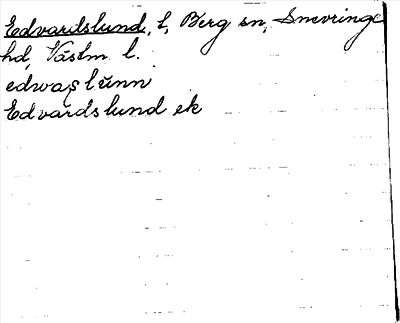 Edvardslund, t, Berg sn, Snevringe
hd, Västm l.
edwaṣlūnn
Edvardslund ek